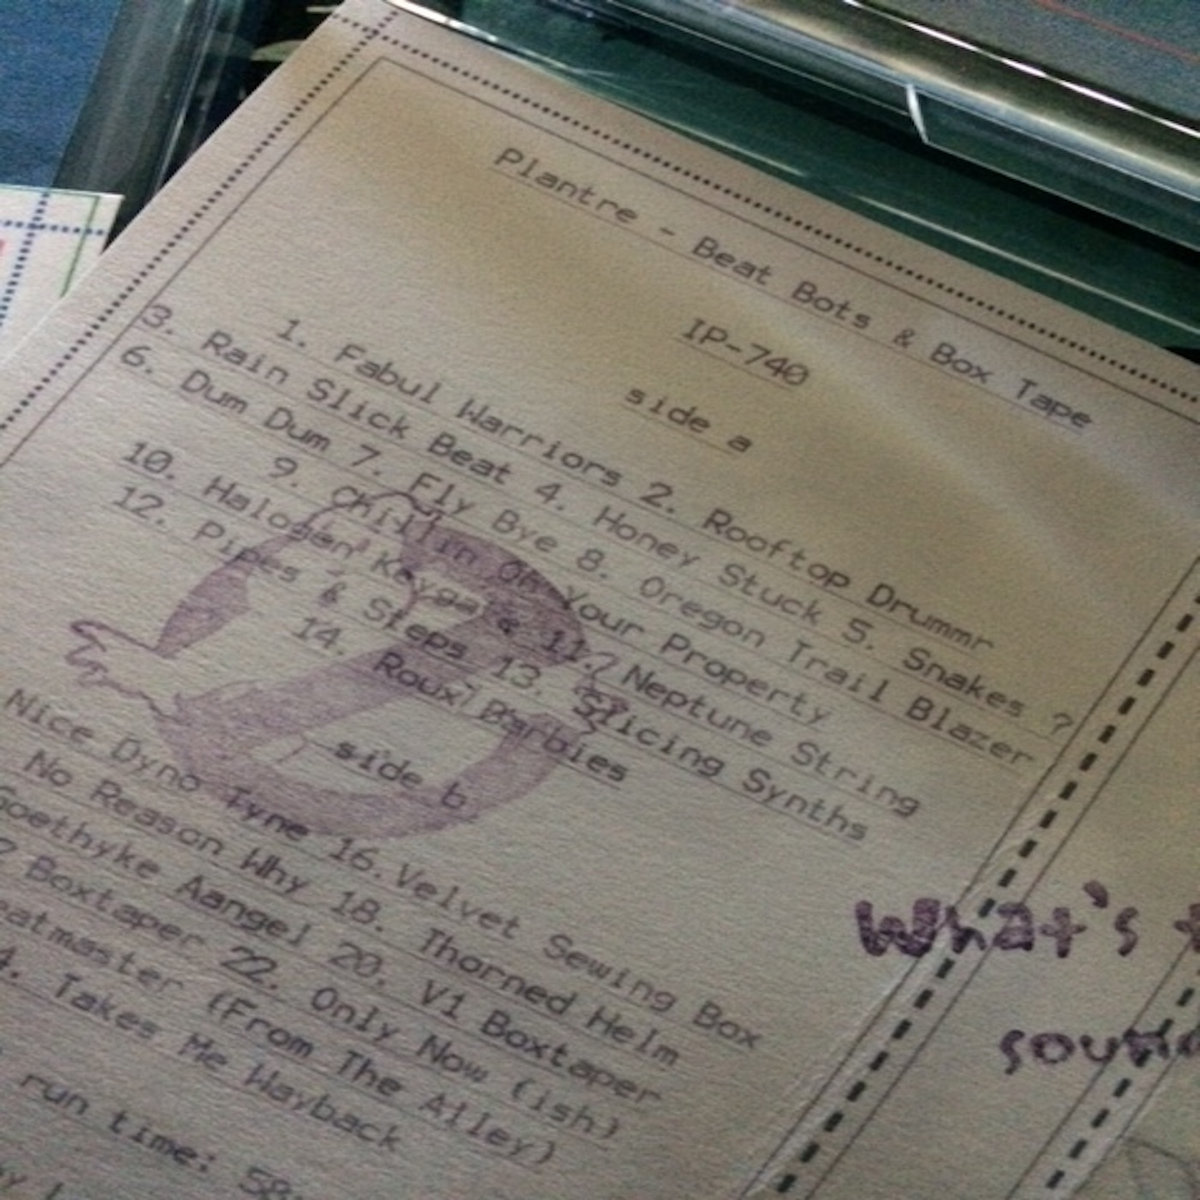 Plantre - Beat Bots & Box Tape
IP-740
side a
1. Fabul Warriors 2. Rooftop Drummr
3. Rain Slick Beat 4. Honey Stuck 5. Snakes ?
6. Dum Dum 7. Fly Bye 8. Oregon Trail Blazer
9. Chillin On Your Property
10. Halogen Keygas & 11. Neptune String
12. Pipes & Steps 13. Slicing Synths
14. Roux Barbies
side b
Nice Dyno Tyne 16. Velvet Sewing Box
No Reason Why 18. Thorned Helm
Goethyke Aangel 20. V1 Boxtaper
Boxtaper 22. Only Now (ish)
eatmaster (From The Alley)
4. Takes Me Wayback
run time: 58:
What's